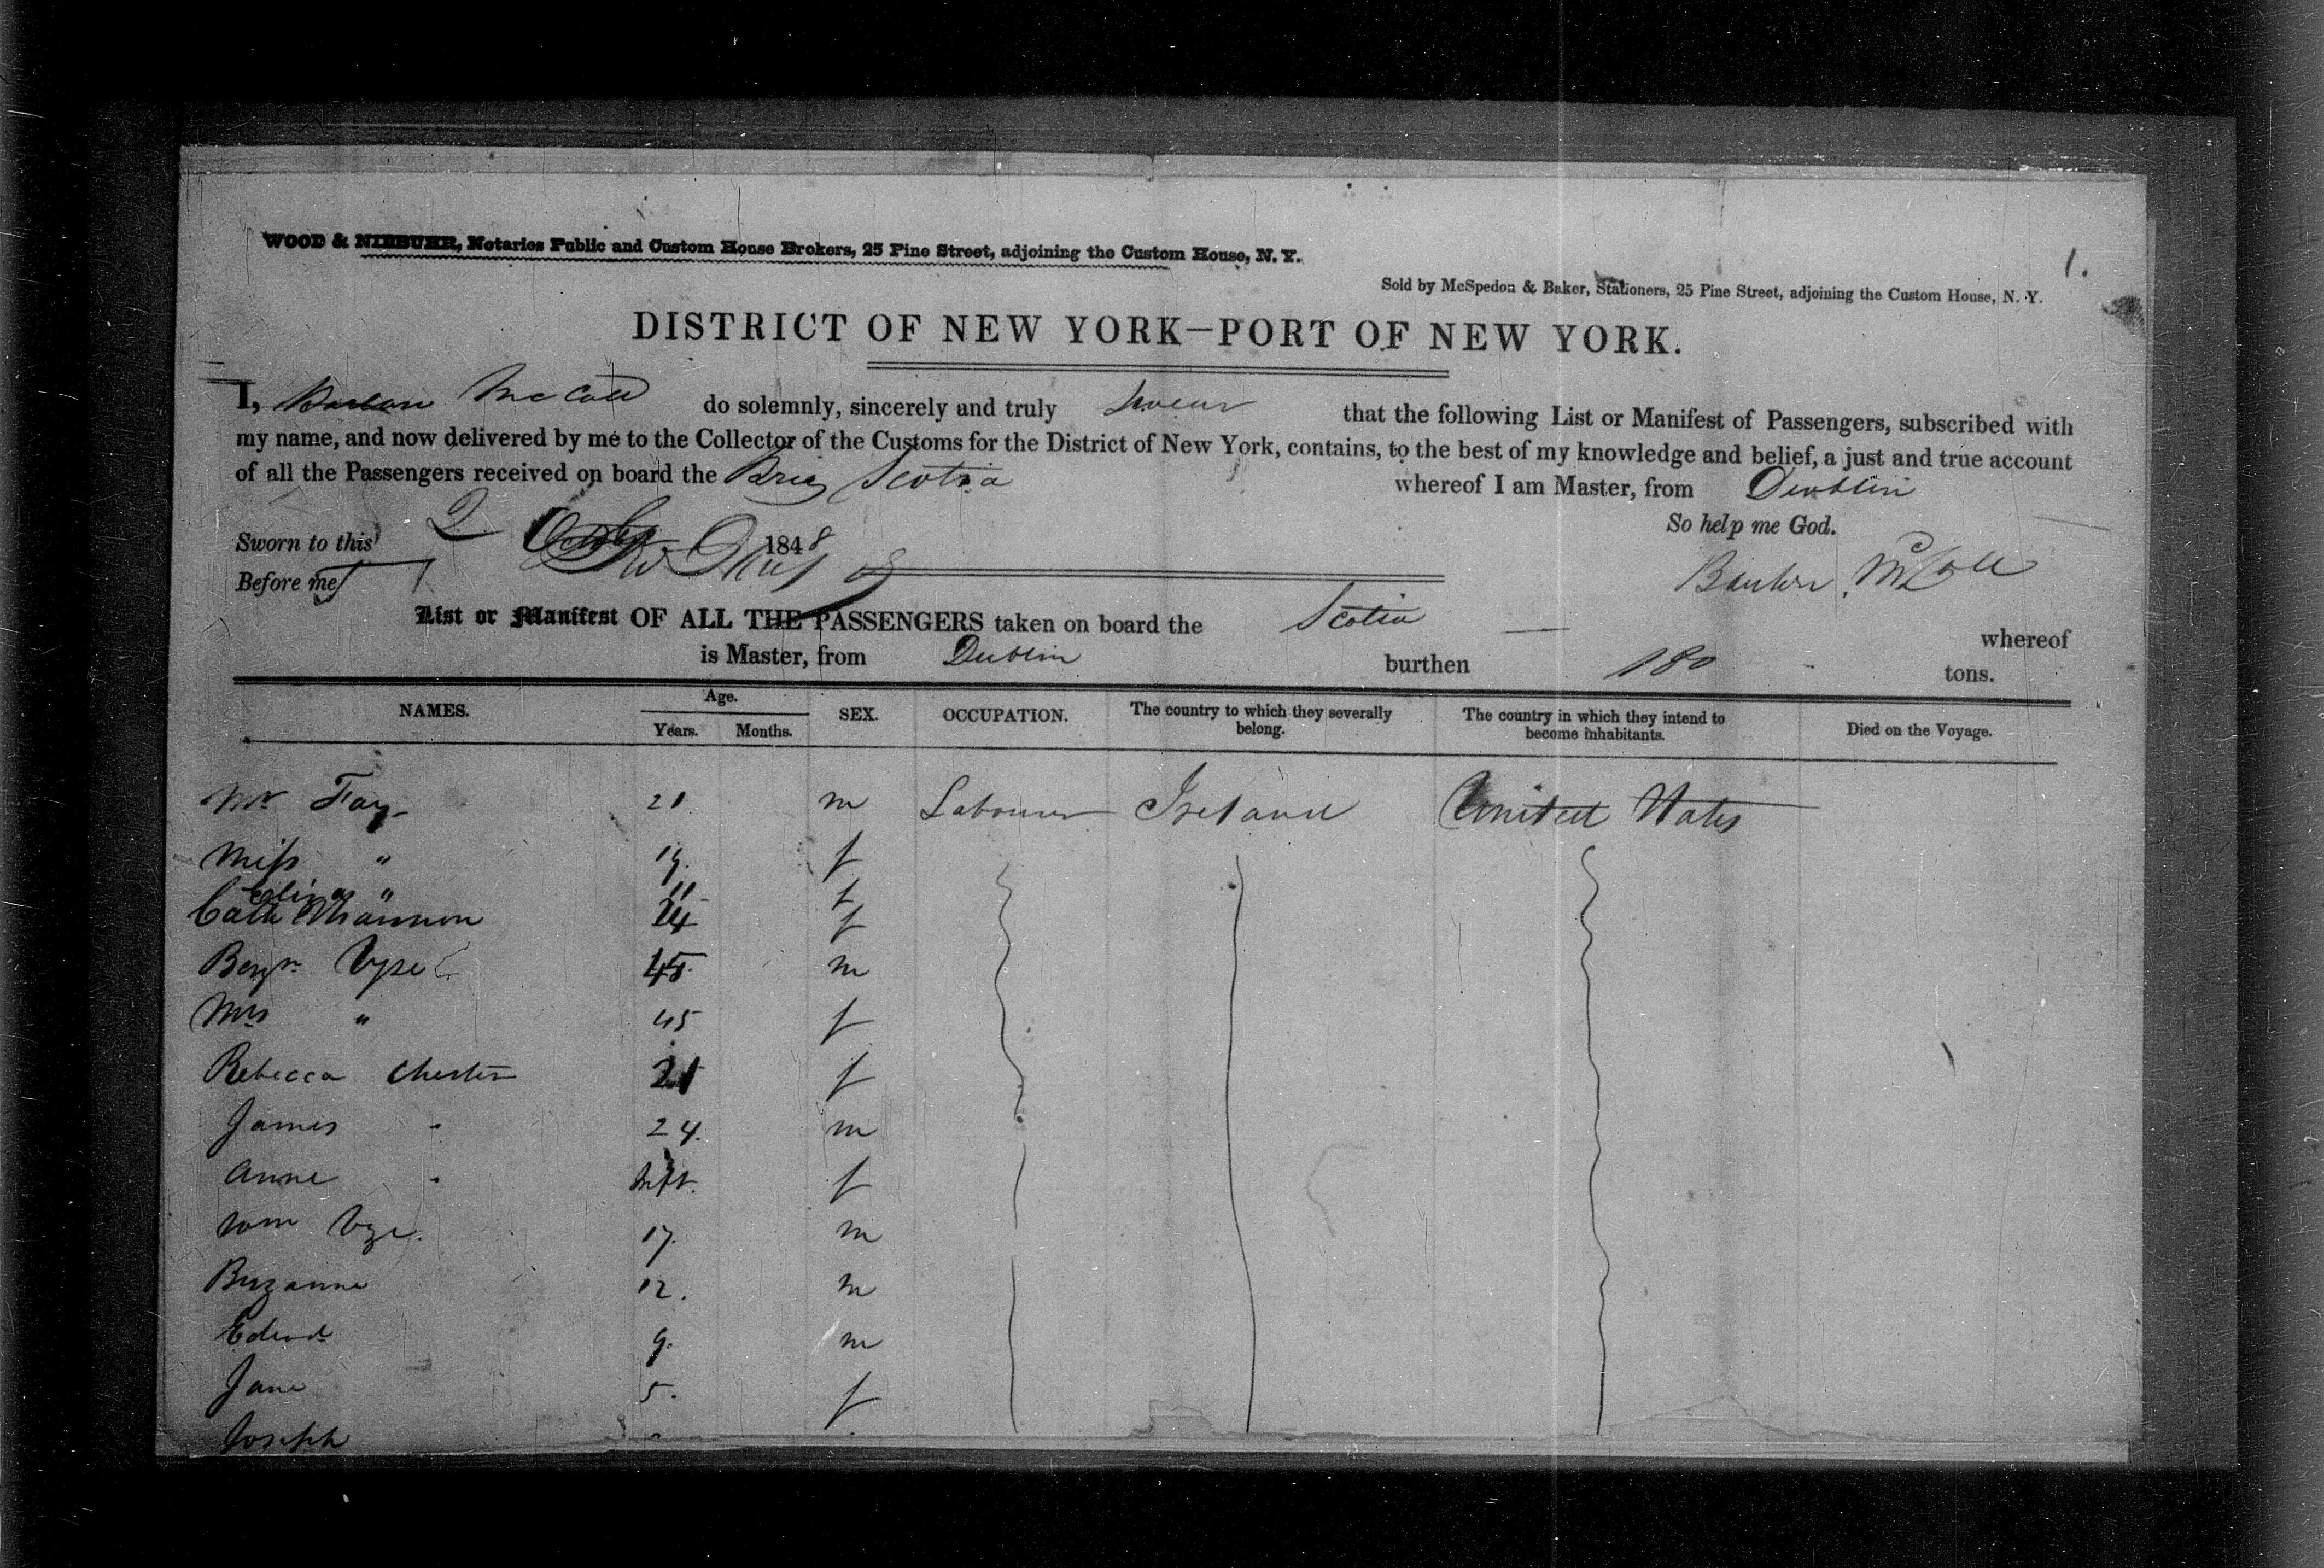 WOOD & NIEBUHR, Notaries Public and Custom House Brokers, 25 Pine Street, adjoining the Custom House, N. Y.
1.
Sold by McSpedon & Baker, Stationers, 25 Pine Street, adjoining the Custom House, N. Y.
DISTRICT OF NEW YORK—PORT OF NEW YORK.
I, McColl do solemnly, sincerely and truly swear that the following List or Manifest of Passengers, subscribed with
my name, and now delivered by me to the Collector of the Customs for the District of New York, contains, to the best of my knowledge and belief, a just and true account
of all the Passengers received on board the Brig Scotia whereof I am Master, from Dublin
So help me God.
Sworn to this 2 1848
Before me
McColl
List or Manifest OF ALL THE PASSENGERS taken on board the Scotia whereof
is Master, from Dublin burthen 180 tons.
NAMES. Age. Years. Months. SEX. OCCUPATION. The country to which they severally belong. The country in which they intend to become inhabitants. Died on the Voyage.
Mr Fay 21 m Labourer Ireland United States
Miss " 19. f
" 11 f
Cath Shannon 14 f
Benjn Vyse 45 m
Mrs " 45 f
Rebecca Chester 21 f
James " 24. m
Anne " Inft. f
Wm Vyse 17. m
12. m
Edwd 9. m
Jane 5. f
Joseph